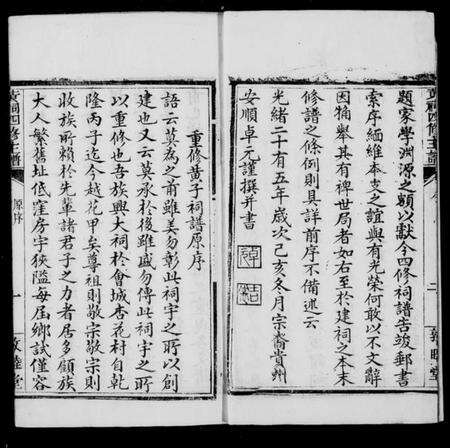 題家學淵源之額以獻今四修祠譜告竣郵書
索序緬維本支之誼與有光榮何敢以不文辭
因犕舉其有裨世局者如右至於建祠之本末
修譜之條例則具詳前序不備述云
光緒二十有五年歲次己亥冬月宗裔貴州
安順卓元謹撰并書
黃祠四修主譜
原序
一
敦睦堂
重修黃子祠譜原序
語云莫為之前雖美勿彰此祠宇之所以創
建也又云莫承於後雖盛勿傳此祠宇之所
以重修也吾族與大祠於會城杏花村自乾
隆丙子迄今越花甲矣尊祖則敬宗敬宗則
收族所賴於先輩諸君子之力者居多顧族
大人繁舊址低窪房宇狹隘每屆鄉試僅容